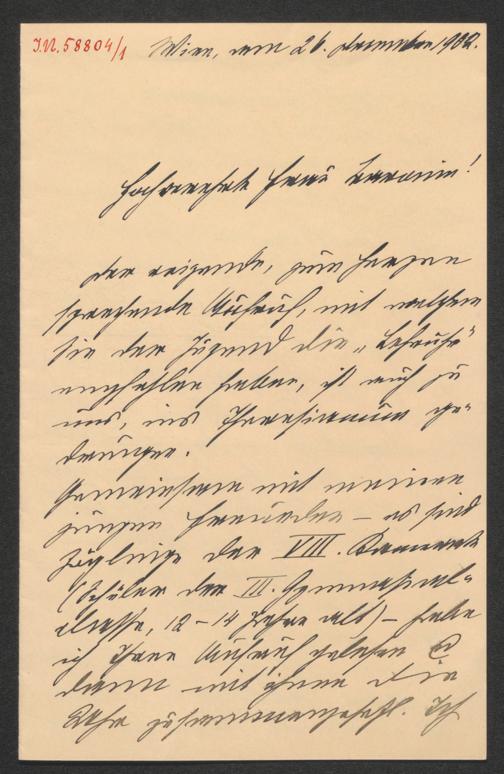 I.N. 58804/1
Wien, am 26. Dezember 1902.
Hochverehrte Frau Baronin!
Der reizende, zum Herzen
sprechende Aufruf, mit welchem
Sie der Jugend die „
empfohlen haben, ist auch zu
uns, ins Theresianum ge-
drungen.
Gemeinsam mit meinen
jungen Freunden – es sind
Zöglinge der VIII. Kamerate
(Schüler der III. Gymnasial-
classe, 12–14 Jahre alt) – habe
ich Ihren Aufruf gelesen &
dann mit ihnen die
zusammengestellt. Ich